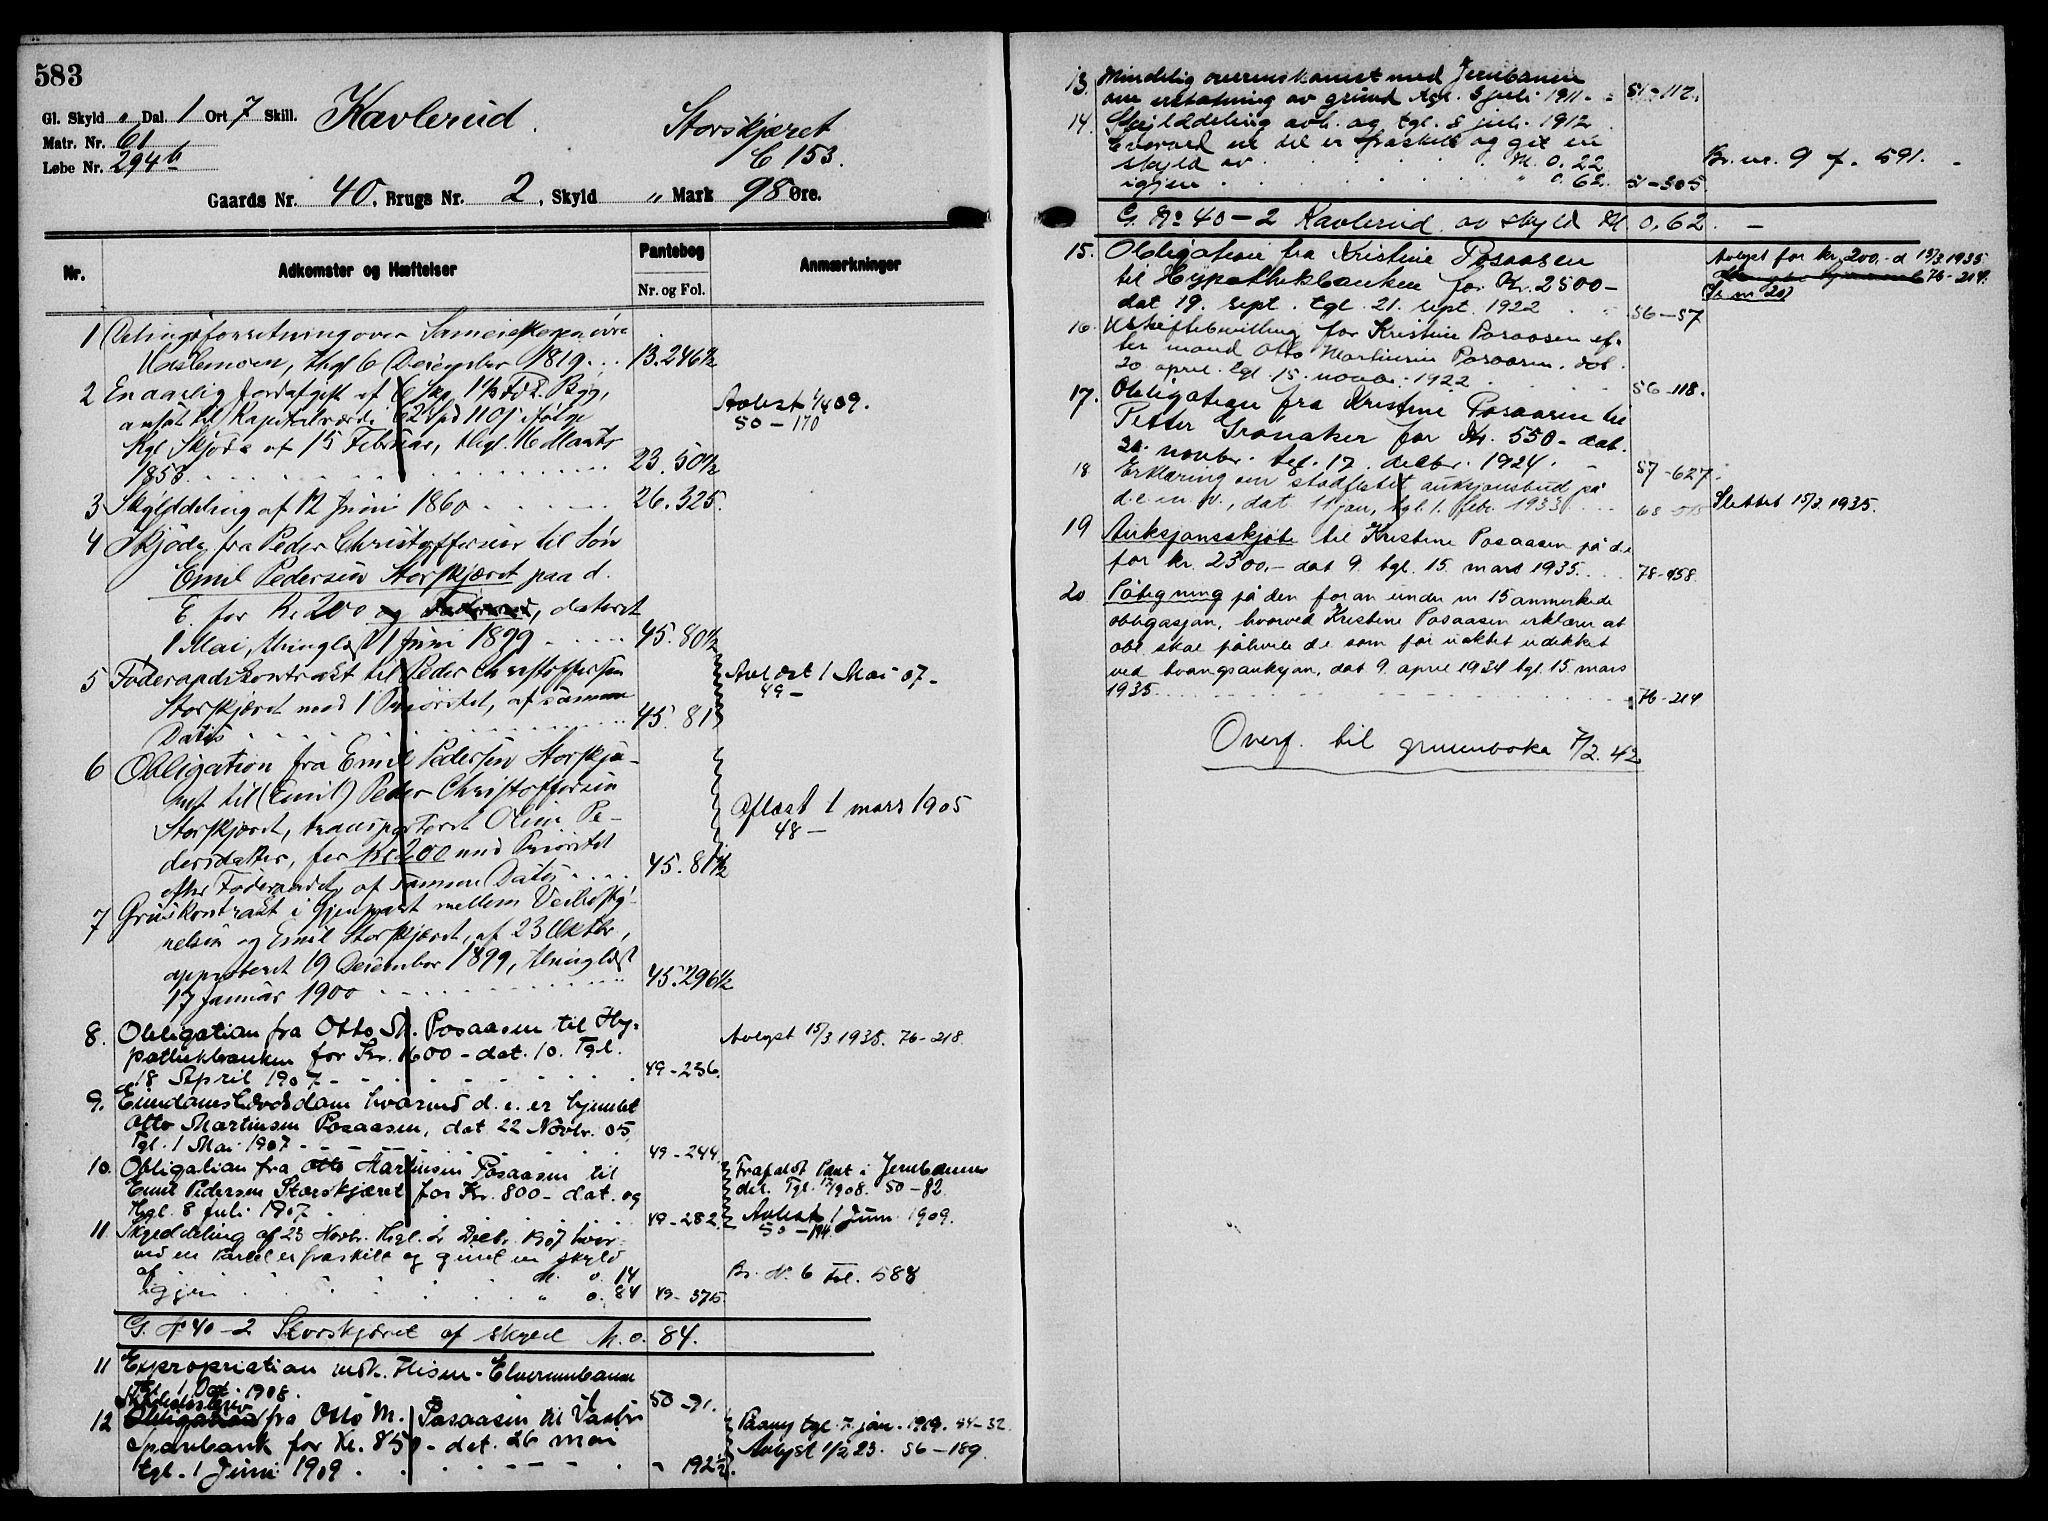 583
Gl. Skyld " Dal. 1 Ort 7 Skill. Kavlerud. Storskjæret
Matr. Nr. 61 C 153.
Løbe Nr. 294b
Gaards Nr. 40. Brugs Nr. 2, Skyld " Mark 98 Øre.
Nr. Adkomster og Hæftelser Pantebog Anmærkninger
Nr. og Fol.
1 over
Haslemoen, thgl 6 December 1819 13.246½
2 En aarlig Jordafgift af 6 Skp. Byg,
ansat til Kapitalværdi 62 Spd 110 ifølge Avlæst 1/4 09.
50-170
Kgl Skjøde af 15 Februar, thgl. 16 Marts
1858 23.50½
3 Skylddeling af 12 Juni 1860 26.325.
4 Skjøde fra Peder Christoffersen til Søn
Emil Pedersen Storskjæret paa d.
E for Kr 200 og Føderaad, dateret
1 Mai, thinglæst 1 Juni 1899 45.80½
5 Føderaadskontrakt til Peder Christoffersen Avlæst 1 Mai 07-
49-
Storskjæret med 1 Prioritet, af samme
Datis 45.81
6 Obligation fra Emil Pedersen Storskjæ-
ret til (Emil) Peder Christoffersen
Storskjæret, transporteret Oline Pe- Aflæst 1 mars 1905
48-
dersdatter, for Kr 200 med Prioritet
efter Føderaadet, af samme Datis 45.81½
7 Gruskontrakt i gjenpart mellem Veibesty-
relsen og Emil Storskjæret, af 23 Oktbr,
approberet 19 December 1899, thinglæst
17 Januar 1900 45.296½
8. Obligation fra Otto M. Posaasen til Hy- Avlyst 15/3 1935. 76-218.
pothekbanken for Kr. 1600- dat. 10. Tgl.
18 April 1907- 49-236.
9. Eiendomsbesdom hvorved d.e. er hjemlet
Otto Martinsen Posaasen, dat 22 Novbr. 05,
Tgl. 1 Mai 1907 49-244.
10. Obligation fra Otto Martinsen Posaasen til Frafaldt Pant i Jernbanens
Emil Pedersen Storskjæret for Kr. 800- dat. og del. Tgl. 50-82.
thgl. 8 Juli 1907 49-282. Avlæst 1 Juni 1909.
11 Skylddeling af 23 Novbr. thgl. 2 Decbr. 1907 hvor- 50-194.
ved en Parcel er fraskilt og givet en skyld
af M. 0. 14 Br. N. 6 Fol. 588
igjen " 0. 84 49-375.
G. N 40-2 Storskjæret af skyld M. 0. 84.
11 Expropriation vedk. Flisen-Elverumbanen
Tgl. 1 Oct. 1908. 50-91.
Skadesløsbrev
12 Obligation fra Otto M. Posaasen til Vaaler Paateg tgl. 7 jan. 1919. 54-32.
Sparebank for Kr. 850- dat. 26 mai Avlyst 1/2 23. 56-189.
tgl. 1 Juni 1909. " 192½.
13. Mindelig overenskomst med Jernbanen
om erstatning av grund tgl. 5 juli 1911. 51-112.
14. Skylddeling avh. og tgl. 8 juli 1912
hvorved en del er fraskilt og git en
skyld av M. 0. 22 Br. nr. 9 f. 591.
igjen " 0. 62. 51-305.
G. No 40-2 Kavlerud av skyld M. 0,62.
15. Obligation fra Kristine Posaasen Avlyst for kr. 200.- d 15/3 1935
til Hypothekbanken for Kr. 2500- 76-214.
dat 19. sept. tgl. 21. sept. 1922 56-57 (Se nr 20)
16. Uskiftebevilling for Kristine Posaasen ef-
ter mand Otto Martinsen Posaasen. dat.
20 april. tgl. 15. novbr. 1922. 56-118.
17. Obligation fra Kristine Posaasen til
Petter Grønaker for Kr. 550- dat.
20. novbr. tgl. 17. decbr. 1924. 57-627.
18 Erklæring om stadfestet auksjonsbud på
d.e. m. v., dat 11 jan, tgl. 1. febr. 1933 Slettet 15/3. 1935.
19 Auksjonsskjøte til Kristine Posaasen på d.e
for kr. 2300,- dat 9. tgl. 15. mars 1935. 78-458.
20 Påtegning på den foran under nr 15 anmerkede
obligasjon, hvorved Kristine Posaasen erklærer at
obl. skal påhvile d.e. som før uaktet udekket
ved tvangsauksjon, dat 9. april 1934 tgl. 15. mars
1935 76-214
Overf. til grunnboka 7/2.42